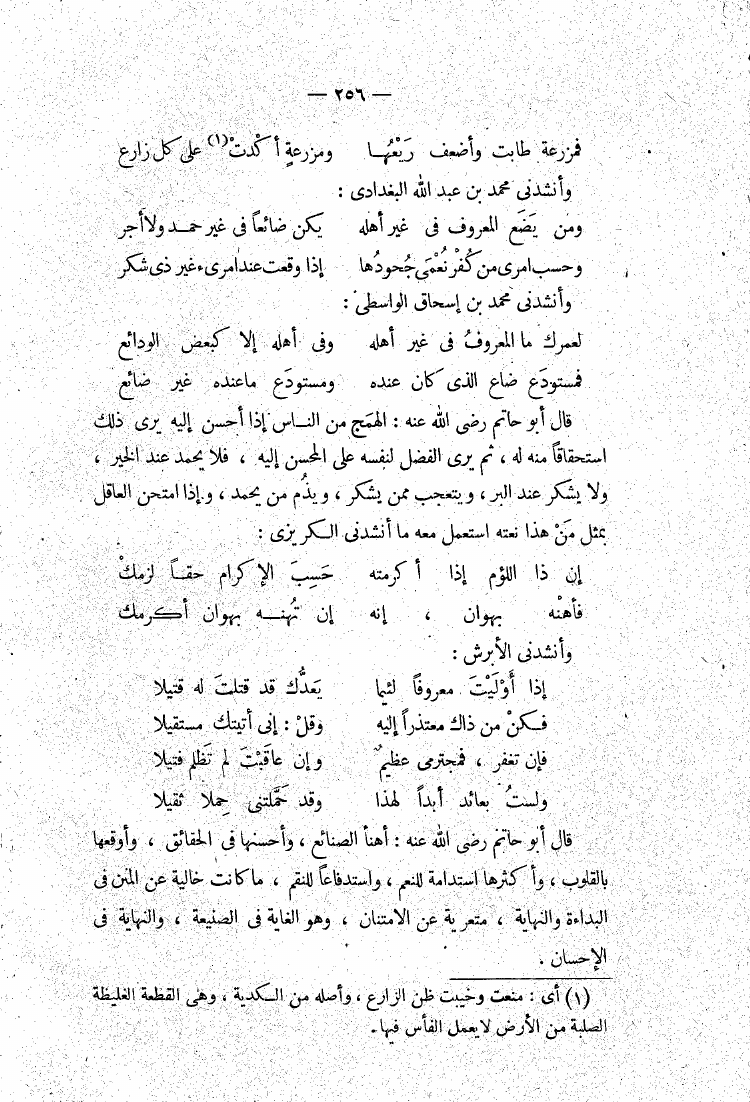 — ٢٥٦ —
فمزرعة طابت وأضعف رَيْعُهـا ومزرعةٍ أكْدتْ(١) على كل زارع
وأنشدنى محمد بن عبد الله البغدادى :
ومن يَضَع المعروف فى غير أهله يكن ضائعاً فى غير حمـد ولاأجر
وحسب امرى من كُفْر نُعْمَى جُحودُها إذا وقعت عند امرىء غير ذى شكر
وأنشدنى محمد بن إسحاق الواسطى :
لعمرك ما المعروفُ فى غير أهله وفى أهله إلا كبعض الودائع
فمستودَع ضاع الذى كان عنده ومستودَع ماعنده غير ضائع
قال أبو حاتم رضى الله عنه : الهمَج من النـاس إذا أحسن إليه يرى ذلك
استحقاقاً منه له ، ثم يرى الفضل لنفسه على المحسن إليه ، فلا يحمد عند الخير ،
ولا يشكر عند البر ، ويتعجب ممن يشكر ، ويذُم من يحمد ، وإذا امتحن العاقل
بمثل مَنْ هذا نعته استعمل معه ما أنشدنى الكريزى :
إن ذا اللؤم إذا أكرمته حَسِبَ الإكرام حقـاً لزمكْ
فأهنْه بهوان ، إنه إن تُهنـه بهوان أكرمك
وأنشدنى الأبرش :
إذا أَوْلَيْتَ معروفاً لئيما يَعدُّك قد قتلتَ له قتيلا
فكنْ من ذاك معتذراً إليه وقلْ : إنى أتيتك مستقيلا
فإن تغفر ، فمجترمى عظيمٌ وإن عاقبْتَ لم تَظلم فتيلا
ولستُ بعائد أبداً لهذا وقد حَمَّلتنى حِملا ثقيلا
قال أبو حاتم رضى الله عنه : أهنأ الصنائع ، وأحسنها فى الحقائق ، وأوقعها
بالقلوب ، وأكثرها استدامة للنعم ، واستدفاعاً للنقم ، ماكانت خالية عن المنن فى
البداءة والنهاية ، متعرية عن الامتنان ، وهو الغاية فى الصنيعة ، والنهاية فى
الإحسان .
(١) أى : منعت وخيبت ظن الزارع ، وأصله من الكدية ، وهى القطعة الغليظة
الصلبة من الأرض لايعمل الفأس فيها .